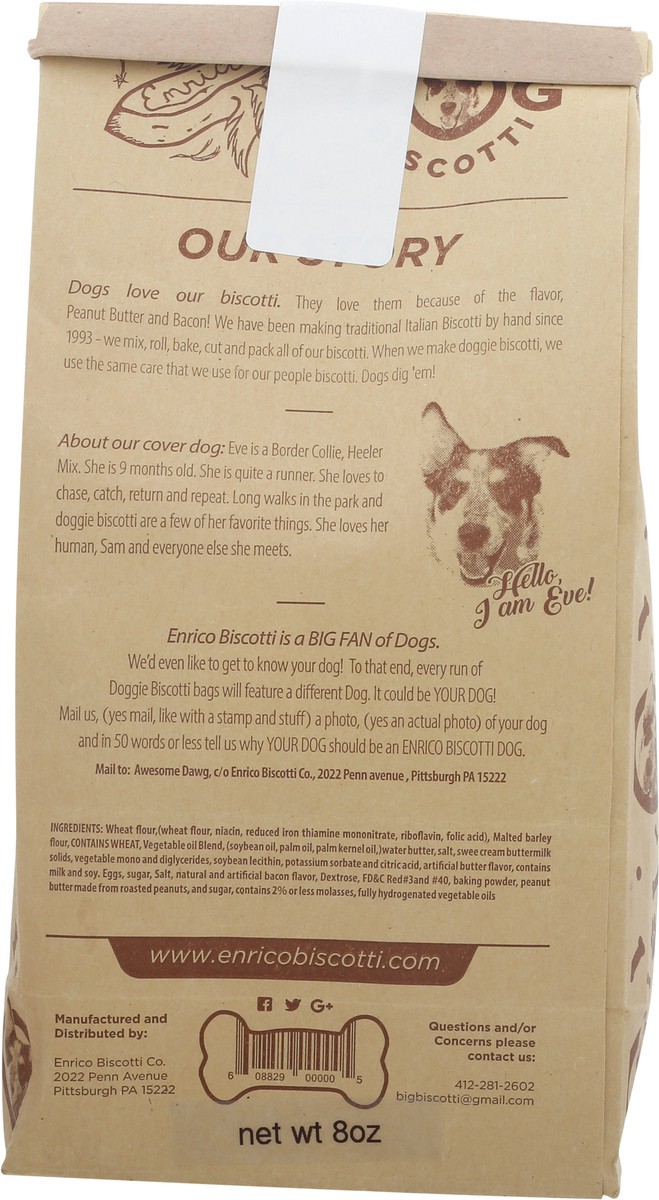 Enrico
OG
BISCOTTI
OUR STORY
Dogs love our biscotti. They love them because of the flavor,
Peanut Butter and Bacon! We have been making traditional Italian Biscotti by hand since
1993 - we mix, roll, bake, cut and pack all of our biscotti. When we make doggie biscotti, we
use the same care that we use for our people biscotti. Dogs dig 'em!
About our cover dog: Eve is a Border Collie, Heeler
Mix. She is 9 months old. She is quite a runner. She loves to
chase, catch, return and repeat. Long walks in the park and
doggie biscotti are a few of her favorite things. She loves her
human, Sam and everyone else she meets.
Hello,
I am Eve!
Enrico Biscotti is a BIG FAN of Dogs.
We'd even like to get to know your dog! To that end, every run of
Doggie Biscotti bags will feature a different Dog. It could be YOUR DOG!
Mail us, (yes mail, like with a stamp and stuff) a photo, (yes an actual photo) of your dog
and in 50 words or less tell us why YOUR DOG should be an ENRICO BISCOTTI DOG.
Mail to: Awesome Dawg, c/o Enrico Biscotti Co., 2022 Penn avenue , Pittsburgh PA 15222
INGREDIENTS: Wheat flour,(wheat flour, niacin, reduced iron thiamine mononitrate, riboflavin, folic acid), Malted barley
flour, CONTAINS WHEAT, Vegetable oil Blend, (soybean oil, palm oil, palm kernel oil,)water butter, salt, swee cream buttermilk
solids, vegetable mono and diglycerides, soybean lecithin, potassium sorbate and citric acid, artificial butter flavor, contains
milk and soy. Eggs, sugar, Salt, natural and artificial bacon flavor, Dextrose, FD&C Red#3and #40, baking powder, peanut
butter made from roasted peanuts, and sugar, contains 2% or less molasses, fully hydrogenated vegetable oils
www.enricobiscotti.com
G+
Manufactured and
Distributed by:
Enrico Biscotti Co.
2022 Penn Avenue
Pittsburgh PA 15222
6 08829 00000 5
Questions and/or
Concerns please
contact us:
412-281-2602
bigbiscotti@gmail.com
net wt 8oz